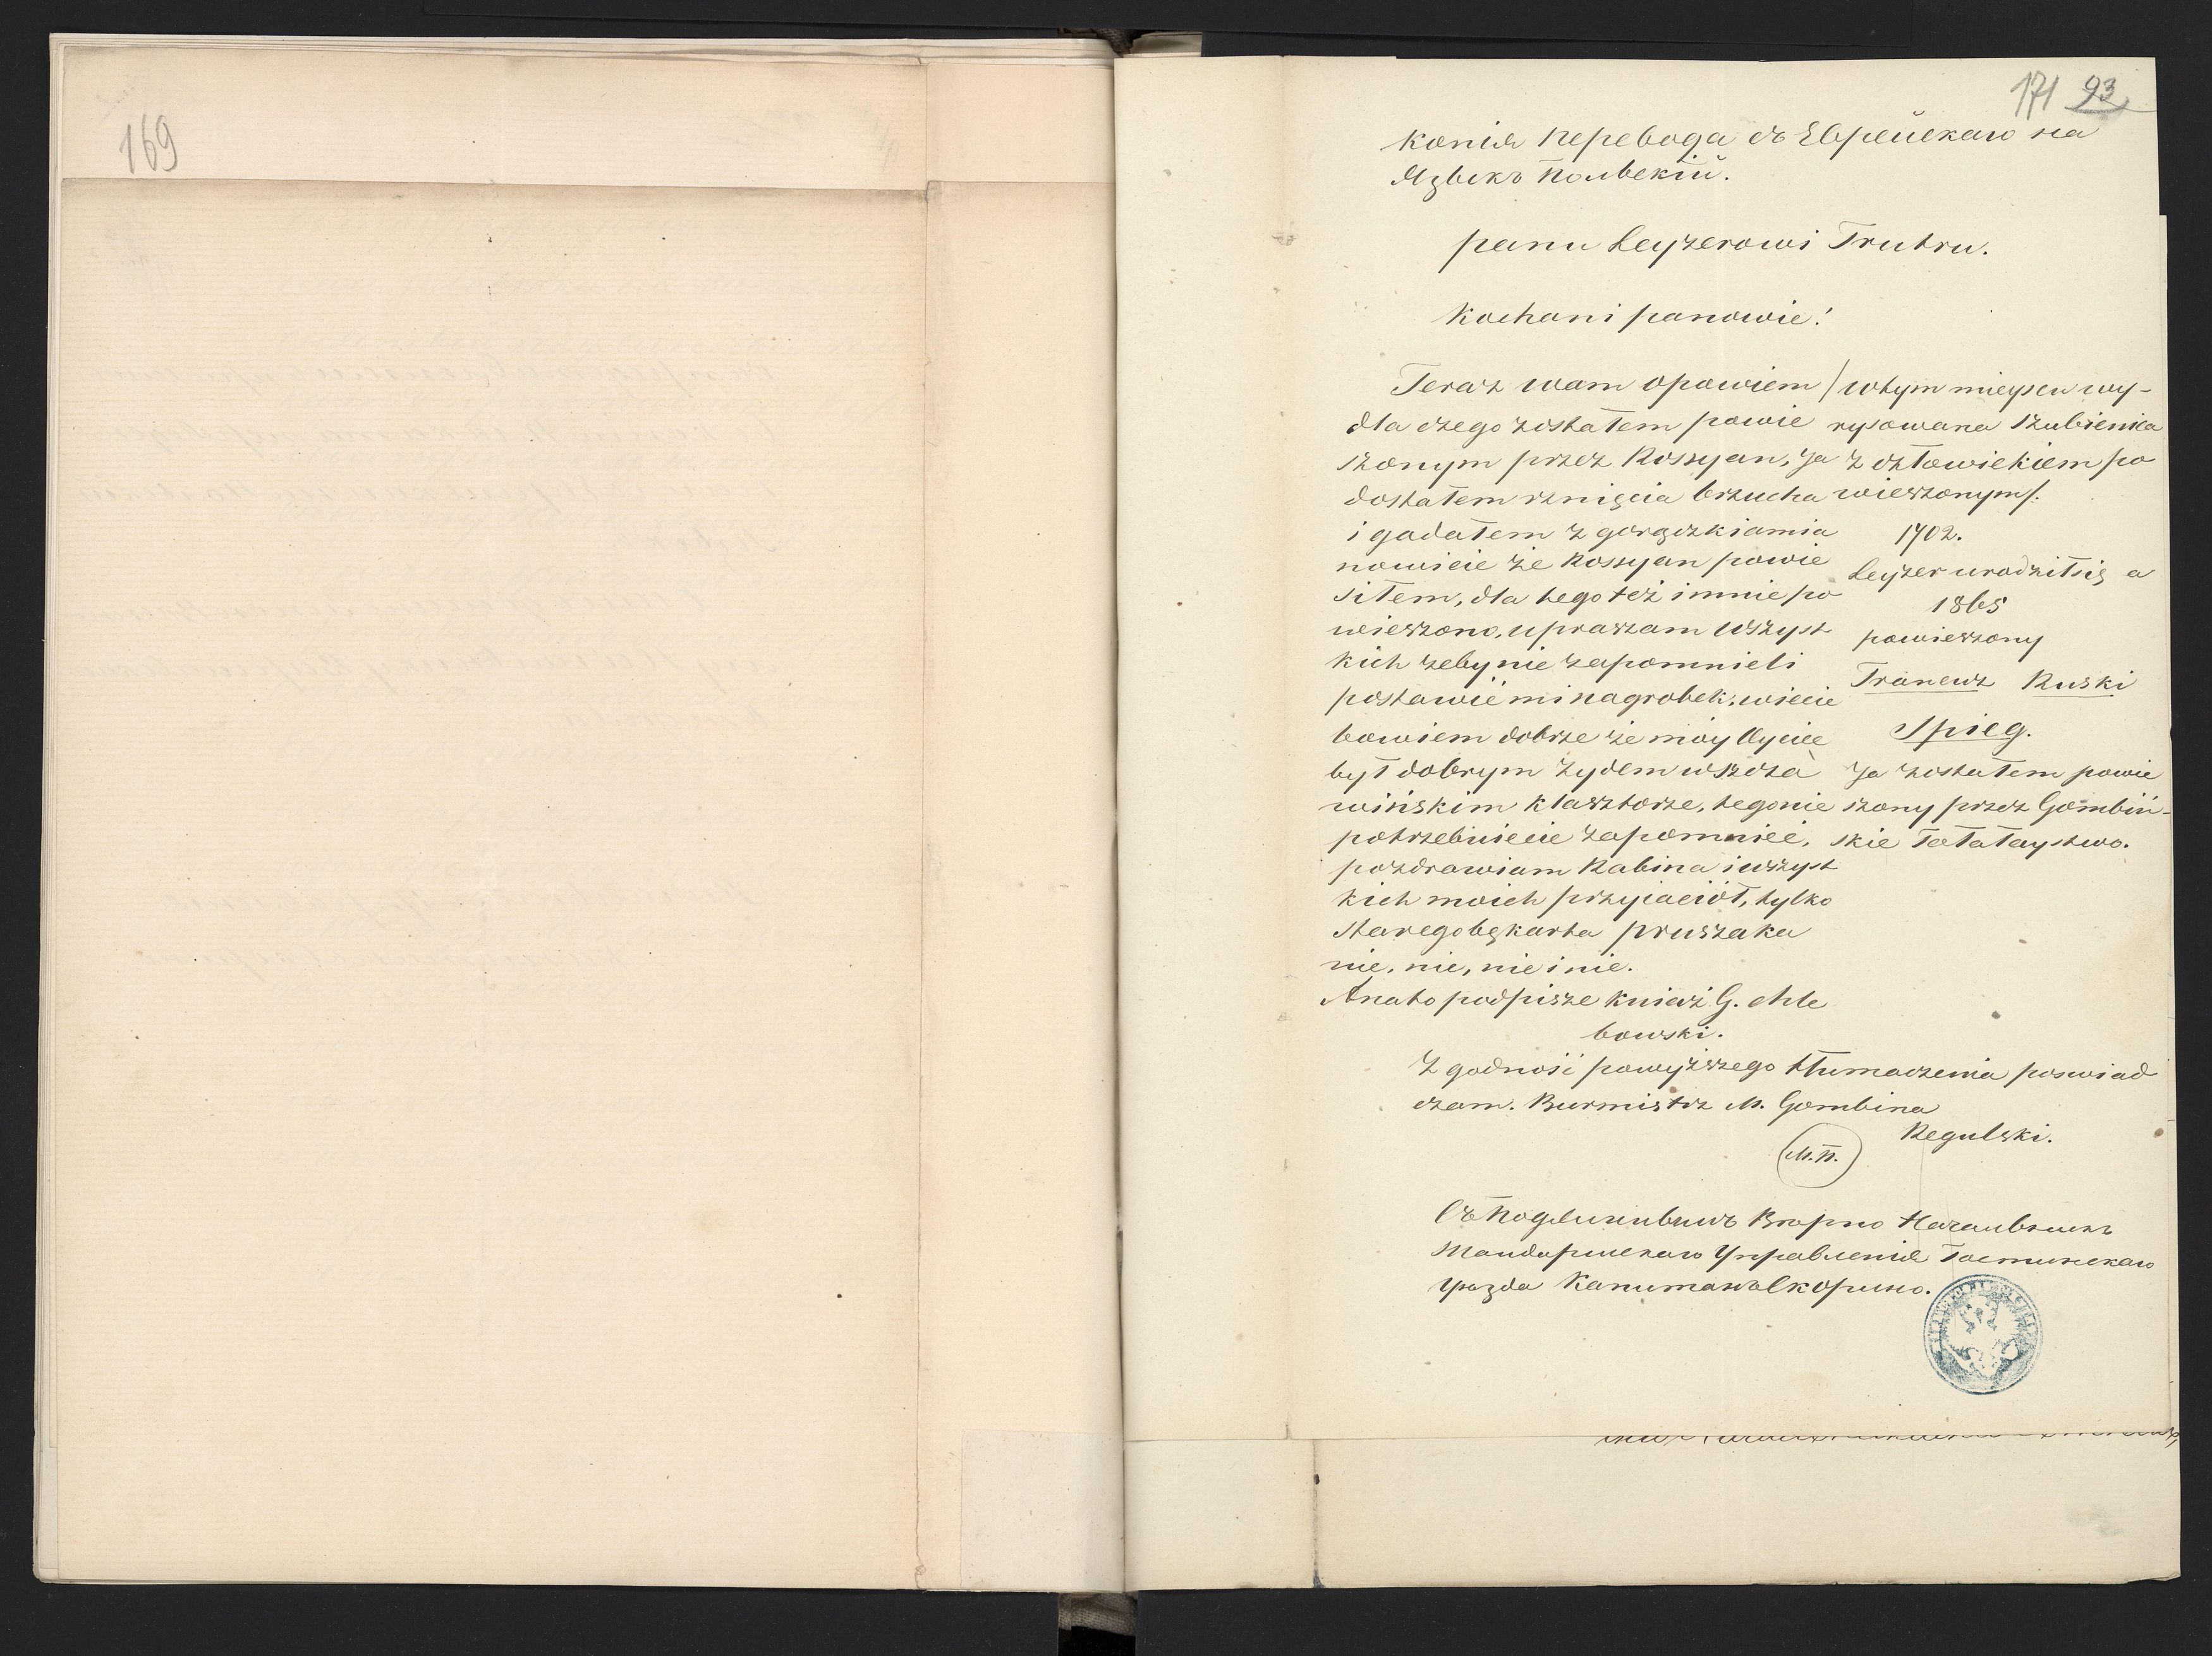 169
171 93
Копія перевода съ Еврейскаго на
Языкъ Польскій.
panu Leyzerowi Trutru.
Kochani panowie!
Teraz wam opowiem
dla czego zostałem powie
szonym przez Rossyan, ja
dostałem rznięcia brzucha
i gadałem z gorączki a mia
nowicie że Rossyan powie
siłem, dla tego też i mnie po
wieszono, upraszam wszyst
kich żeby nie zapomnieli
postawić mi nagrobek, wiecie
bowiem dobrze że móy Oyciec
był dobrym żydem w szcza
wińskim klasztorze, tego nie
potrzebuiecie zapomnieć,
pozdrawiam Rabina i wszyst
kich moich przyiaciół, tylko
starego bękarta pruszaka
nie, nie, nie i nie.
A na to podpisze kniaź G. chle
bowski.
/w tym mieyscu wy-
rysowana szubienica
z człowiekiem po
wieszonym/.
1702.
Leyzer urodził się a
1865
powieszony
Tranewz Ruski
Spieg.
Ja zostałem powie
szony przez Gombiń-
skie Tałałaystwo.
Zgodność powyższego tłumaczenia poswiad
czam. Burmistrz M. Gombina
Regulski.
(М.П.)
Съ Подлиннымъ Вѣрно Начальникъ
Жандармскаго Управленія Гостинскаго
Уѣзда Капитанъ